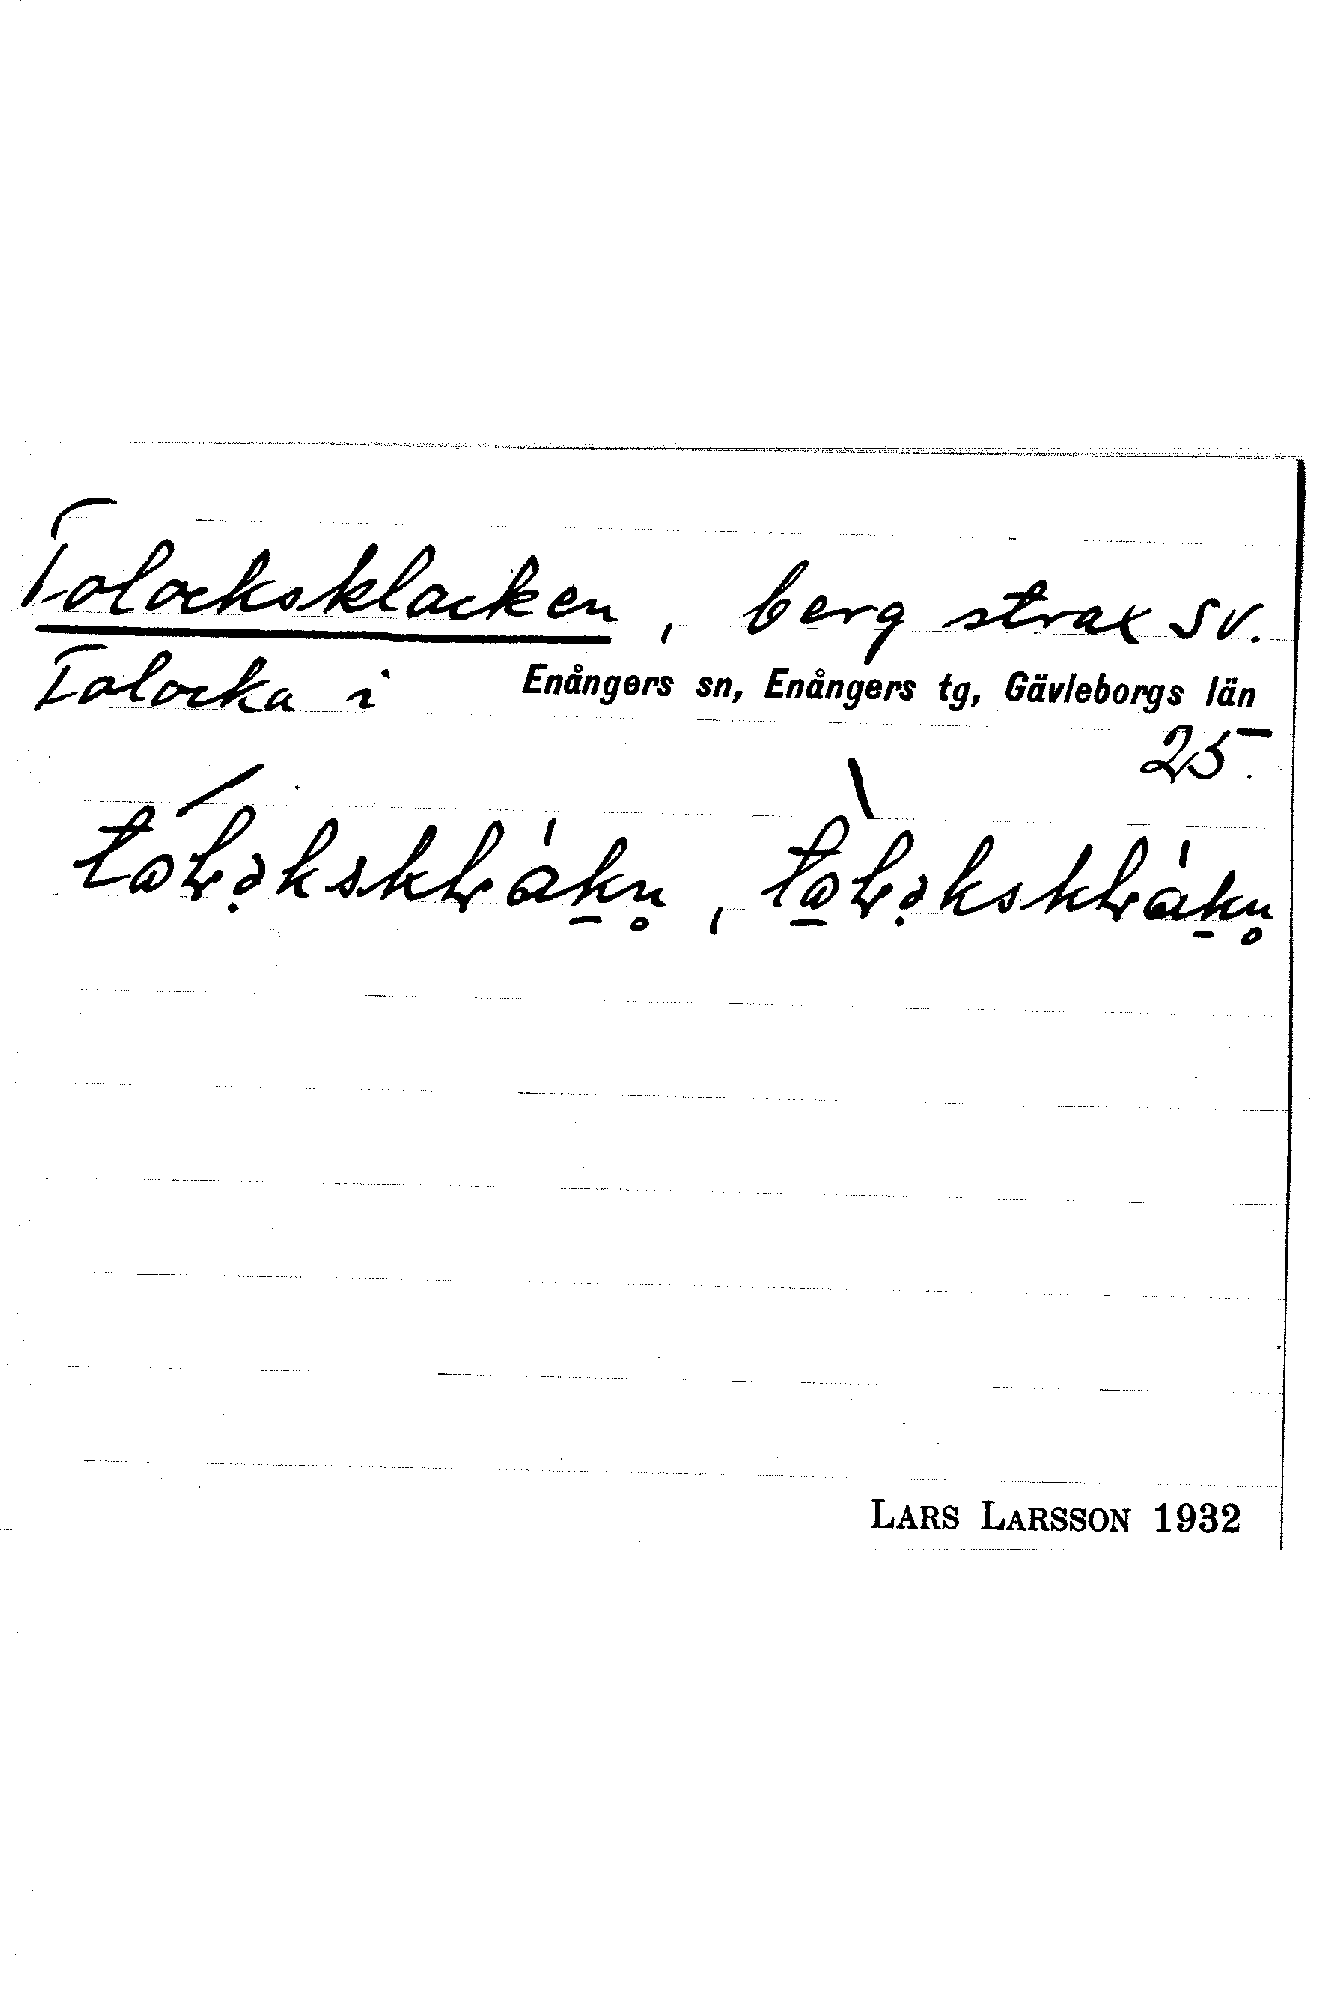 Tolocksklacken, berg strax SV.
Tolocka i Enångers sn, Enångers tg, Gävleborgs län
25.
LARS LARSSON 1932